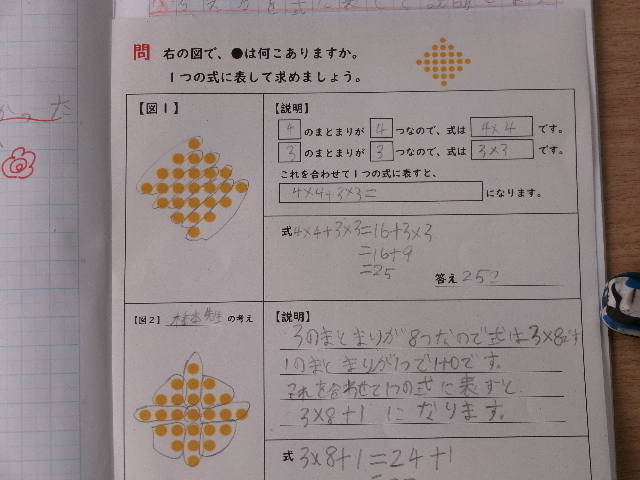 問 右の図で、●は何こありますか。
1つの式に表して求めましょう。
【図1】
【説明】
4 のまとまりが 4 つなので、式は 4×4 です。
3 のまとまりが 3 つなので、式は 3×3 です。
これを合わせて1つの式に表すと、
4×4+3×3= になります。
式 4×4+3×3=16+3×3
=16+9
=25
答え 25こ
【図2】 先生 の考え
【説明】
3のまとまりが8つなので式は3×8です
1のまとまりが1つで1+0です。
これを合わせて1つの式に表すと、
3×8+1 になります。
式 3×8+1=24+1